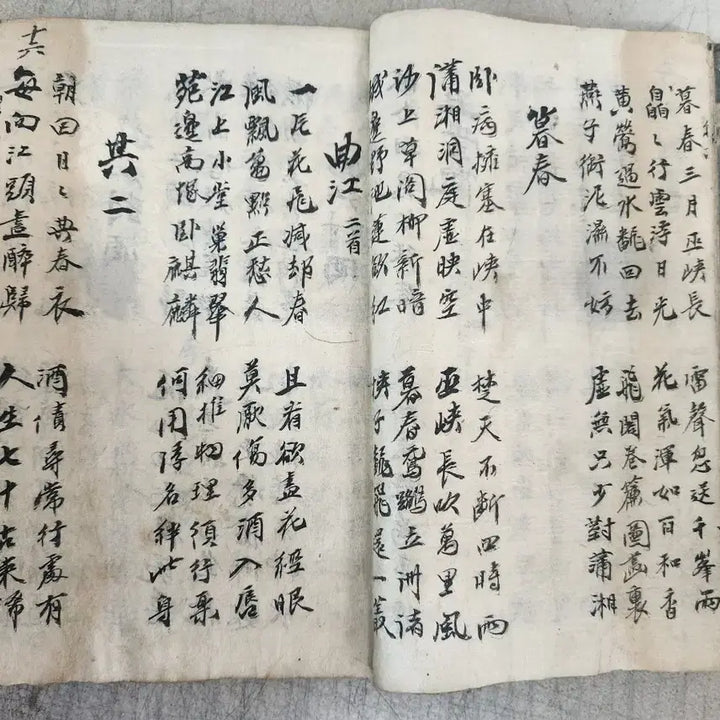 暮春三月巫峽長 雷聲忽送千峯雨
皛〻行雲浮日光 花氣渾如百和香
黄鶯過水翻回去 飛閣卷簾圖畫裏
燕子銜泥濕不妨 虛無只少對瀟湘
暮春
卧病擁塞在峽中 楚天不斷四時雨
瀟湘洞庭虛映空 巫峽長吹萬里風
沙上草閣柳新暗 暮春鴛鷺立洲渚
城邊野池蓮欲紅 挾子翻飛還一叢
曲江 二首
一片花飛減却春 且看欲盡花經眼
風飄萬點正愁人 莫厭傷多酒入唇
江上小堂巢翡翠 細推物理須行樂
苑邊高塚卧麒麟 何用浮名絆此身
其二
朝回日〻典春衣 酒債尋常行處有
每向江頭盡醉歸 人生七十古來稀
十六